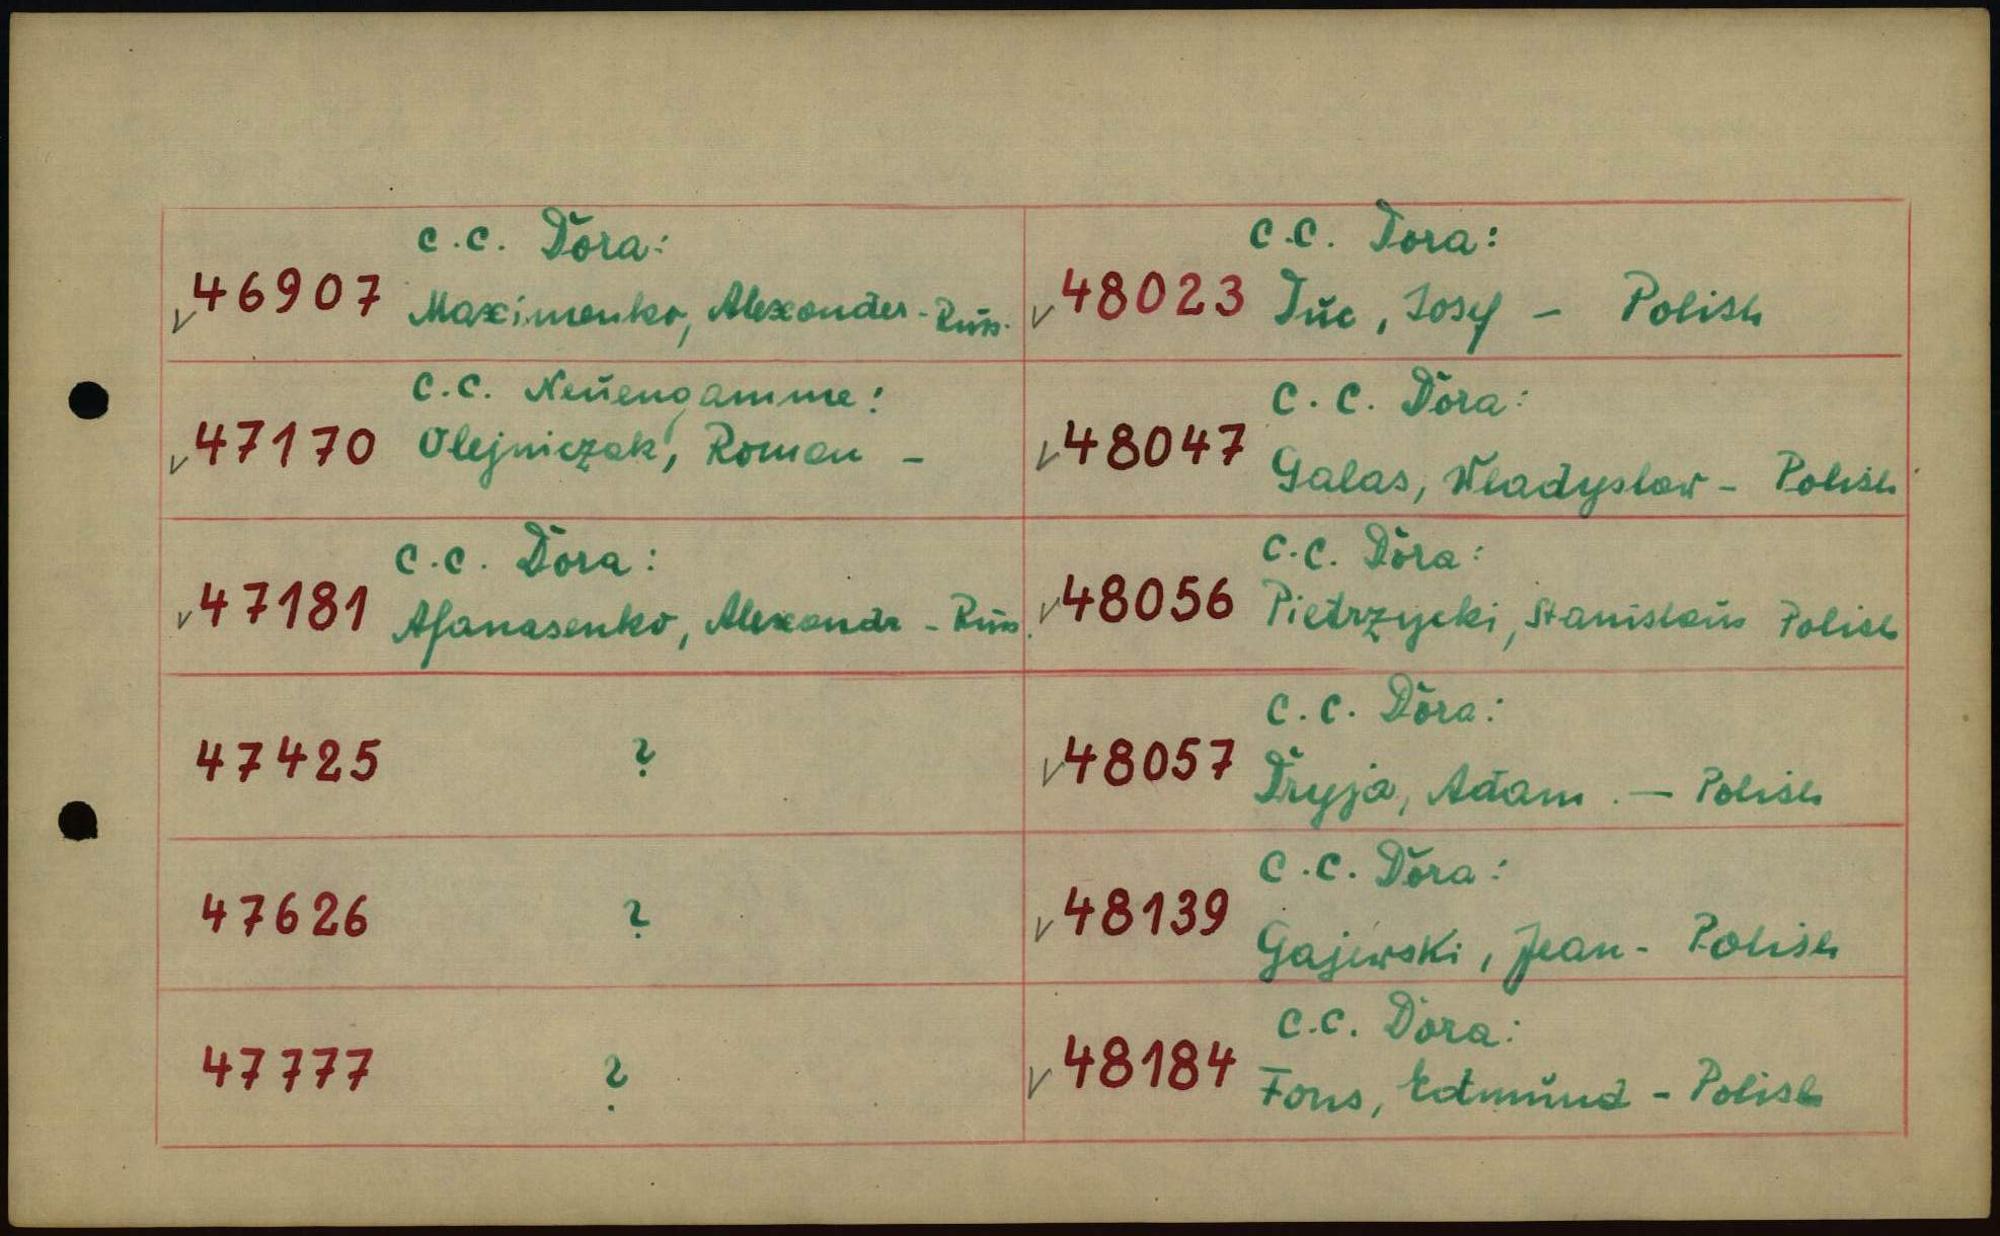 c.c. Dora:
√46907 Maximenko, Alexander - Rus.
c.c. Neuengamme:
√47170 Olejniczak, Roman -
c.c. Dora:
√47181 Afanasenko, Alexandr - Rus.
47425 ?
47626 ?
47777 ?
c.c. Dora:
√48023 Duc, Josef - Polish
c.c. Dora:
√48047 Galas, Wladyslaw - Polish
c.c. Dora:
√48056 Pietrzycki, Stanislaus Polish
c.c. Dora:
√48057 Dryja, Adam. - Polish
c.c. Dora:
√48139 Gajewski, Jean - Polish
c.c. Dora:
√48184 Fons, Edmund - Polish